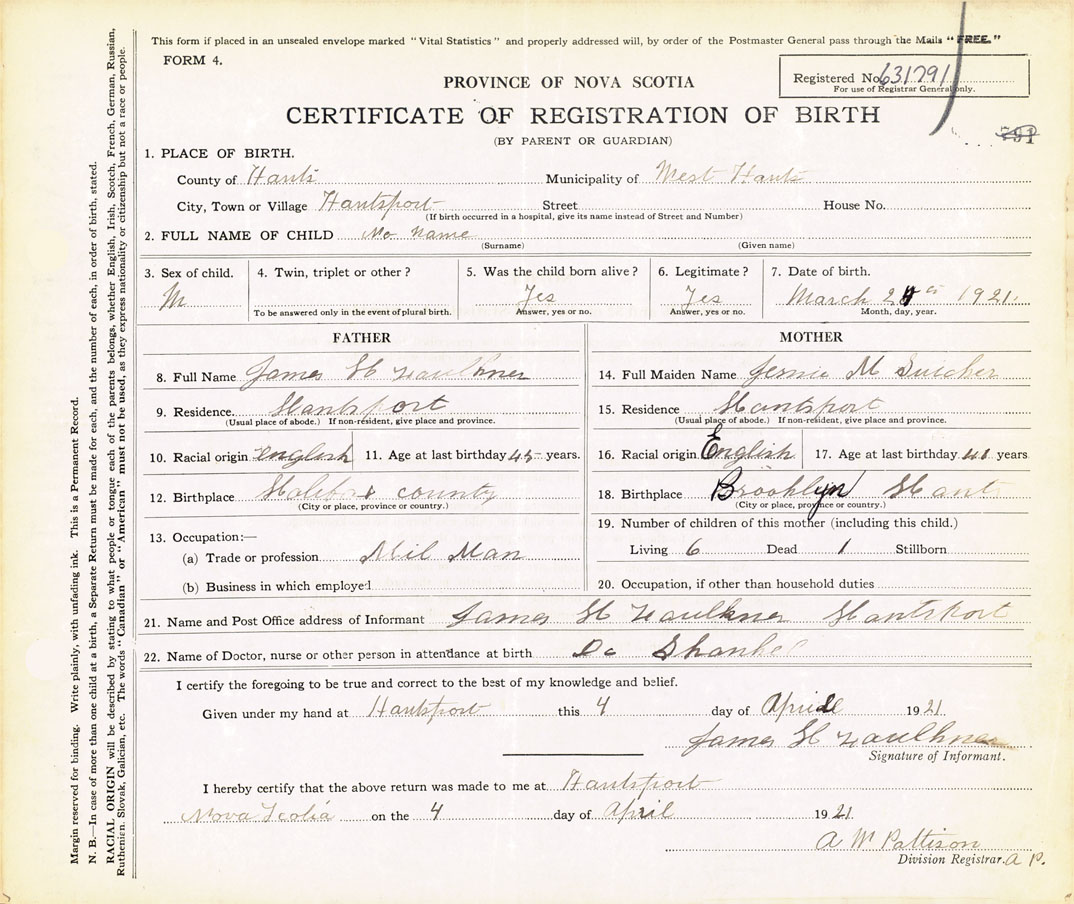 This form if placed in an unsealed envelope marked "Vital Statistics" and properly addressed will, by order of the Postmaster General pass through the Mails "FREE."
FORM 4.
Registered No. 631791
For use of Registrar General only.
PROVINCE OF NOVA SCOTIA
CERTIFICATE OF REGISTRATION OF BIRTH
(BY PARENT OR GUARDIAN)
791
1. PLACE OF BIRTH.
County of Hants Municipality of West Hants
City, Town or Village Hantsport Street House No.
(If birth occurred in a hospital, give its name instead of Street and Number)
2. FULL NAME OF CHILD No name
(Surname) (Given name)
3. Sex of child. 4. Twin, triplet or other? 5. Was the child born alive? 6. Legitimate? 7. Date of birth.
M Yes Yes March 1921.
To be answered only in the event of plural birth. Answer, yes or no. Answer, yes or no. Month, day, year.
FATHER
8. Full Name James H Faulkner
9. Residence. Hantsport
(Usual place of abode.) If non-resident, give place and province.
10. Racial origin English 11. Age at last birthday 45 years.
12. Birthplace Halifax county
(City or place, province or country.)
13. Occupation:—
(a) Trade or profession Mil Man
(b) Business in which employed
MOTHER
14. Full Maiden Name Jessie M
15. Residence Hantsport
(Usual place of abode.) If non-resident, give place and province.
16. Racial origin English 17. Age at last birthday 41 years
18. Birthplace Brooklyn Hant
(City or place, province or country.)
19. Number of children of this mother (including this child.)
Living 6 Dead 1 Stillborn
20. Occupation, if other than household duties
21. Name and Post Office address of Informant James H Faulkner Hantsport
22. Name of Doctor, nurse or other person in attendance at birth Shankel
I certify the foregoing to be true and correct to the best of my knowledge and belief.
Given under my hand at Hantsport this 4 day of April 1921
James H Faulkner
Signature of Informant.
I hereby certify that the above return was made to me at Hantsport
Nova Scotia on the 4 day of April 1921.
A W Pattison
Division Registrar. A P.
Margin reserved for binding. Write plainly, with unfading ink. This is a Permanent Record.
N. B.—In case of more than one child at a birth, a Separate Return must be made for each, and the number of each, in order of birth, stated.
RACIAL ORIGIN will be described by stating to what people or tongue each of the parents belongs, whether English, Irish, Scotch, French, German, Russian,
Ruthenian, Slovak, Galician, etc. The words "Canadian" or "American" must not be used, as they express nationality or citizenship but not a race or people.